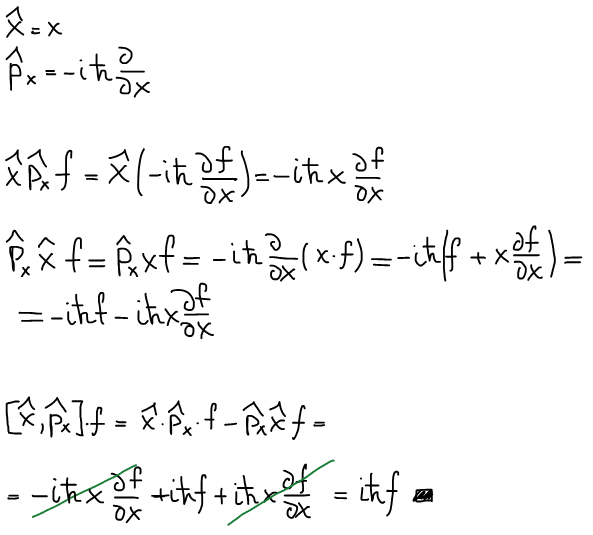 x̂ = x
p̂ₓ = -iħ ∂/∂x
x̂ p̂ₓ f = x̂ (-iħ ∂f/∂x) = -iħ x ∂f/∂x
p̂ₓ x̂ f = p̂ₓ x f = -iħ ∂/∂x (x·f) = -iħ (f + x ∂f/∂x) =
= -iħf - iħx ∂f/∂x
[x̂, p̂ₓ]·f = x̂·p̂ₓ·f - p̂ₓ x̂ f =
= -iħ x ∂f/∂x + iħf + iħ x ∂f/∂x = iħf ■